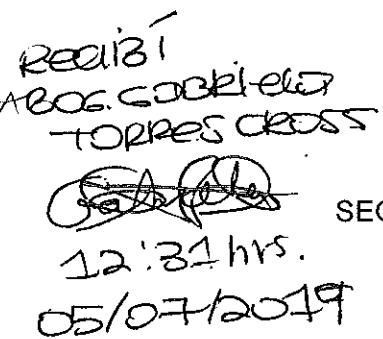 Recibí
ABOG. GABRIELA
TORRES CROSS
SEC
12:31 hrs.
05/07/2019